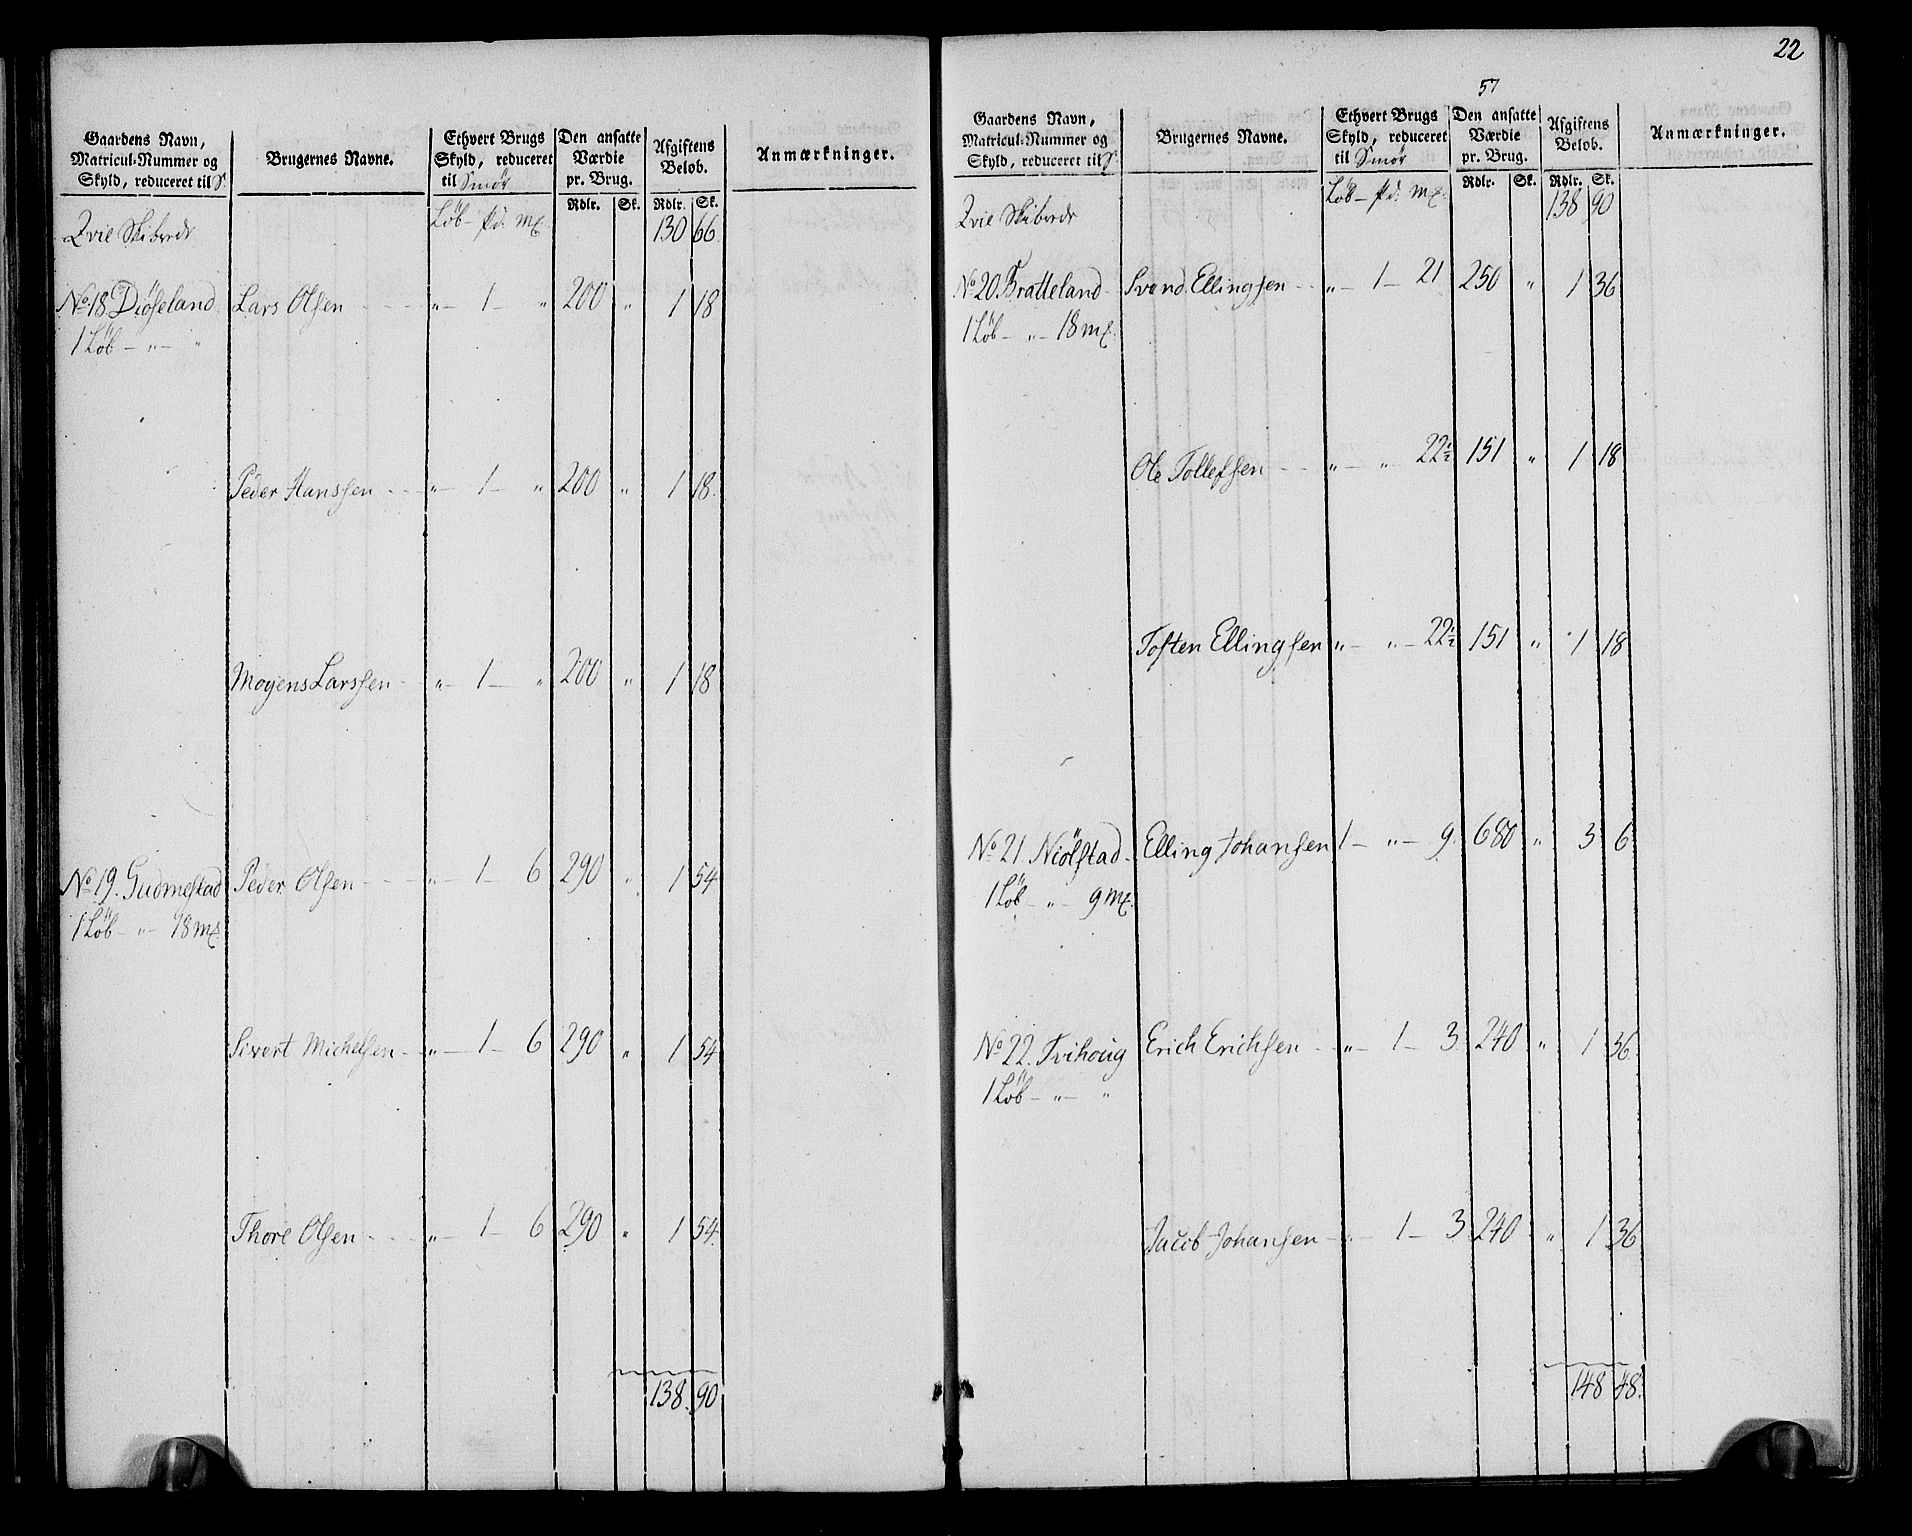 Gaardens Navn, Matricul-Nummer og Skyld, reduceret til S. | Brugernes Navne. | Ethvert Brugs Skyld, reduceret til Smör | Den ansatte Værdie pr. Brug. | Afgiftens Beløb. | Anmærkninger.
Rdlr. Sk. Rdlr. Sk.
Qvie Skibrede Löb – pd: mk 130 66
No 18 Diöseland Lars Olsen „ – 1 – „ 200 „ 1 18
1 Löb – „ – „
Peder Hanssen „ – 1 – „ 200 „ 1 18.
Mogens Larssen – „ – 1 – „ 200 „ 1 18
No 19. Gudmestad Peder Olsen „ – 1 – 6 290 „ 1 54
1 Löb – „ – 18 mk
Sivert Michelsen – „ – 1 – 6 290 „ 1 54
Thore Olsen „ – 1 – 6 290 „ 1 54.
138. 90
22
57
Gaardens Navn, Matricul-Nummer og Skyld, reduceret til S. | Brugernes Navne. | Ethvert Brugs Skyld, reduceret til Smör | Den ansatte Værdie pr. Brug. | Afgiftens Beløb. | Anmærkninger.
Rdlr. Sk. Rdlr. Sk.
Qvie Skibrede Löb – pd: mk. 138 90
No 20 Bratteland Svend Ellingsen „ – 1 – 21 250 „ 1 36
1 Löb – „ – 18 mk.
Ole Tollefsen „ – „ 22½ 151 „ 1 18
Tosten Ellingsen „ – „ – 22½ 151 „ 1 18
No 21 Niölstad – Elling Johansen 1 – „ – 9. 680 „ 3 6
1 Löb – „ – 9 mk.
No 22. Tvihoug Erich Erichsen „ – 1 – 3 240 „ 1 36.
1 Löb – „ – „
Jacob Johansen – „ – 1 – 3 240 „ 1 36
148 48.